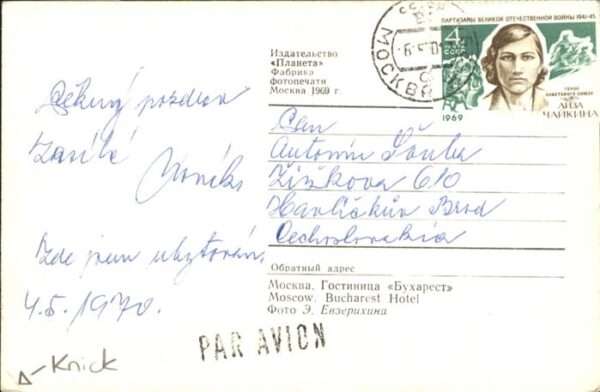 Издательство
«Планета»
Фабрика
фотопечати
Москва 1969 г.
МОСКВА
ПАРТИЗАНЫ ВЕЛИКОЙ ОТЕЧЕСТВЕННОЙ ВОЙНЫ 1941-45
4
ПОЧТА
СССР
1969
ГЕРОЙ
СОВЕТСКОГО СОЮЗА
ЛИЗА
ЧАЙКИНА
Pěkný pozdrav
zasílá
Zde jsem ubytován
4.5.1970.
Pan
Antonín
Žižkova 610
Havlíčkův Brod
Čechoslovakia
Обратный адрес
Москва. Гостиница «Бухарест»
Moscow. Bucharest Hotel
Фото Э. Евзерихина
PAR AVION
Knick